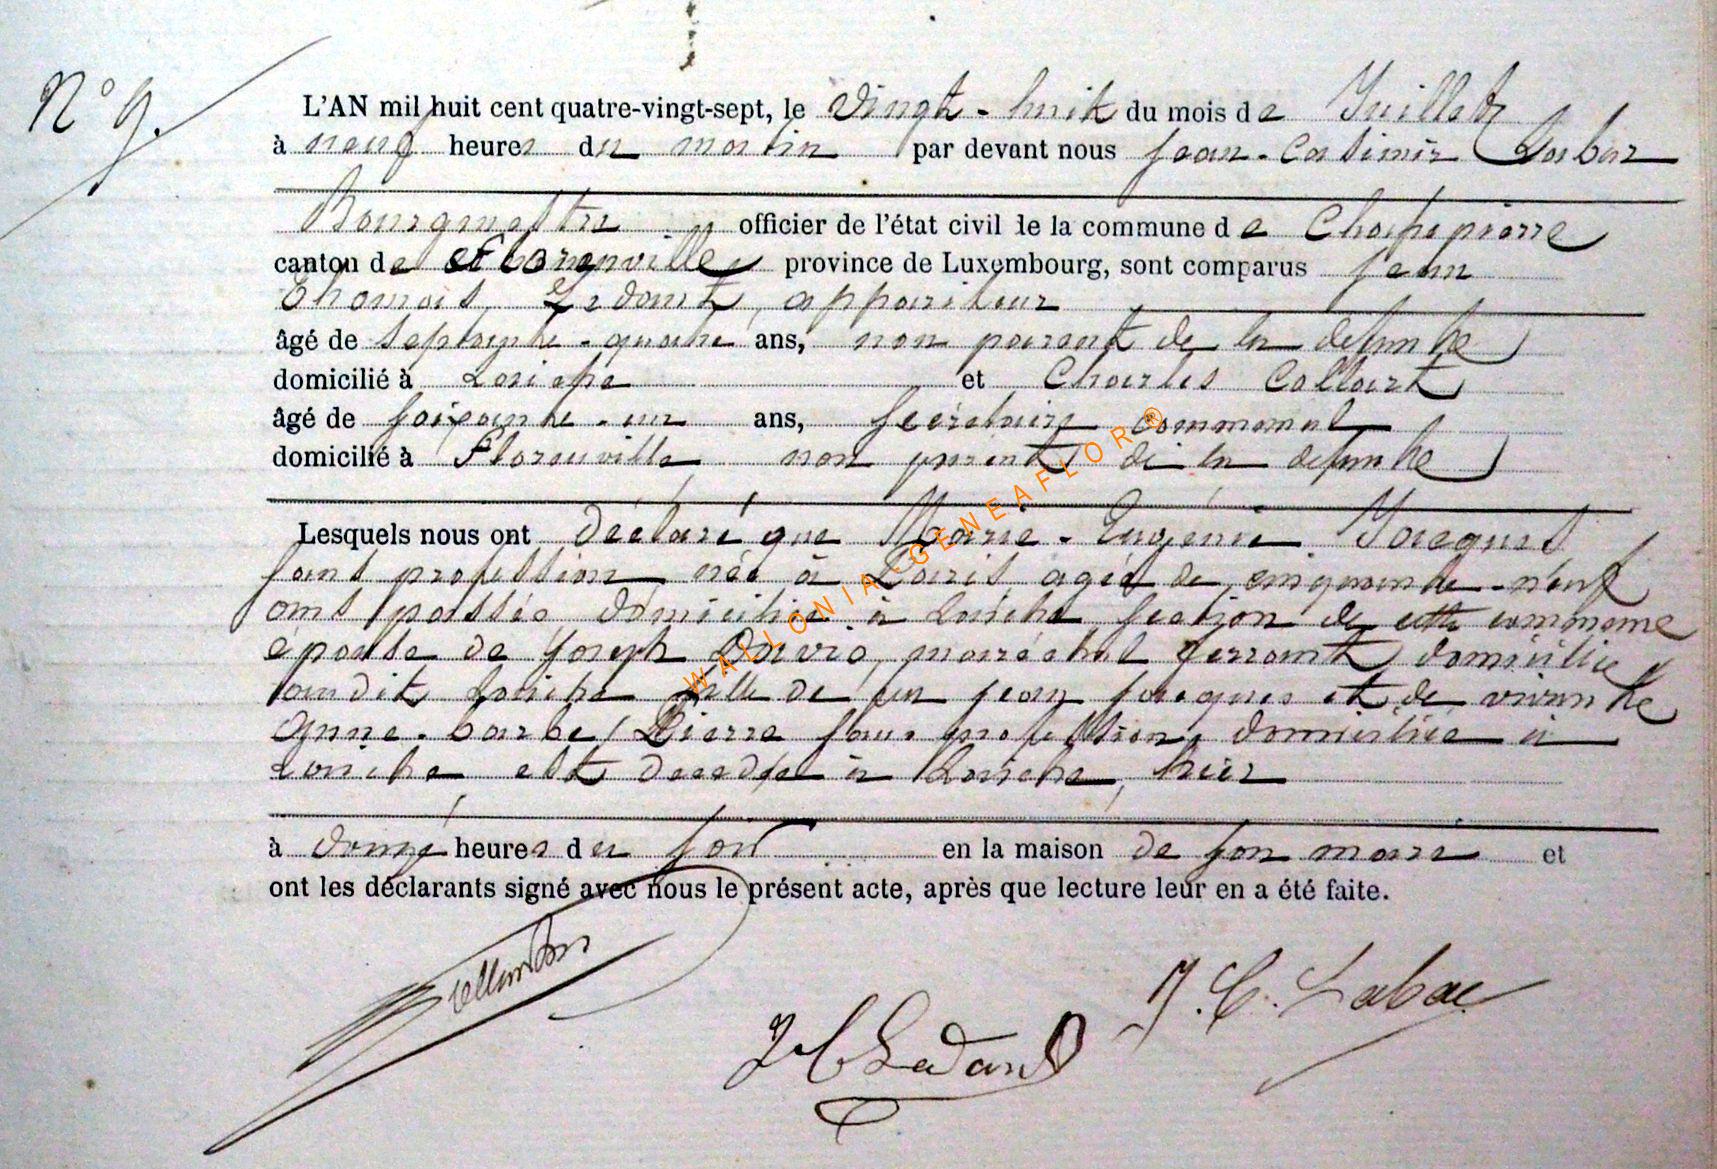 N° 9.
L'AN mil huit cent quatre-vingt-sept, le vingt-huit du mois de Juillet
à neuf heures du matin par devant nous Jean-Casimir Labar
Bourgmestre officier de l'état civil de la commune de Chassepierre
canton de Florenville province de Luxembourg, sont comparus Jean
Thomas Ledant, appariteur
âgé de septante-quatre ans, non parent de la defunte
domicilié à Laiche et Charles Collart
âgé de soixante-un ans, secrétaire communal
domicilié à Florenville, non parent de la defunte
Lesquels nous ont déclaré que Marie-Eugénie Jacques
sans profession née à Paris agée de cinquante-neuf
ans passés domiciliée à Laiche section de cette commune
épouse de Joseph maréchal ferrant domicilié
audit Laiche fille de feu Jean Jacques et de vivante
Anne-barbe Pierre sans profession, domiciliée à
Laiche est décédée à Laiche, hier
à onze heures du soir en la maison de son mari et
ont les déclarants signé avec nous le présent acte, après que lecture leur en a été faite.
J. C. Labar
Ledant
WALLONIA-GENEAFLOR®